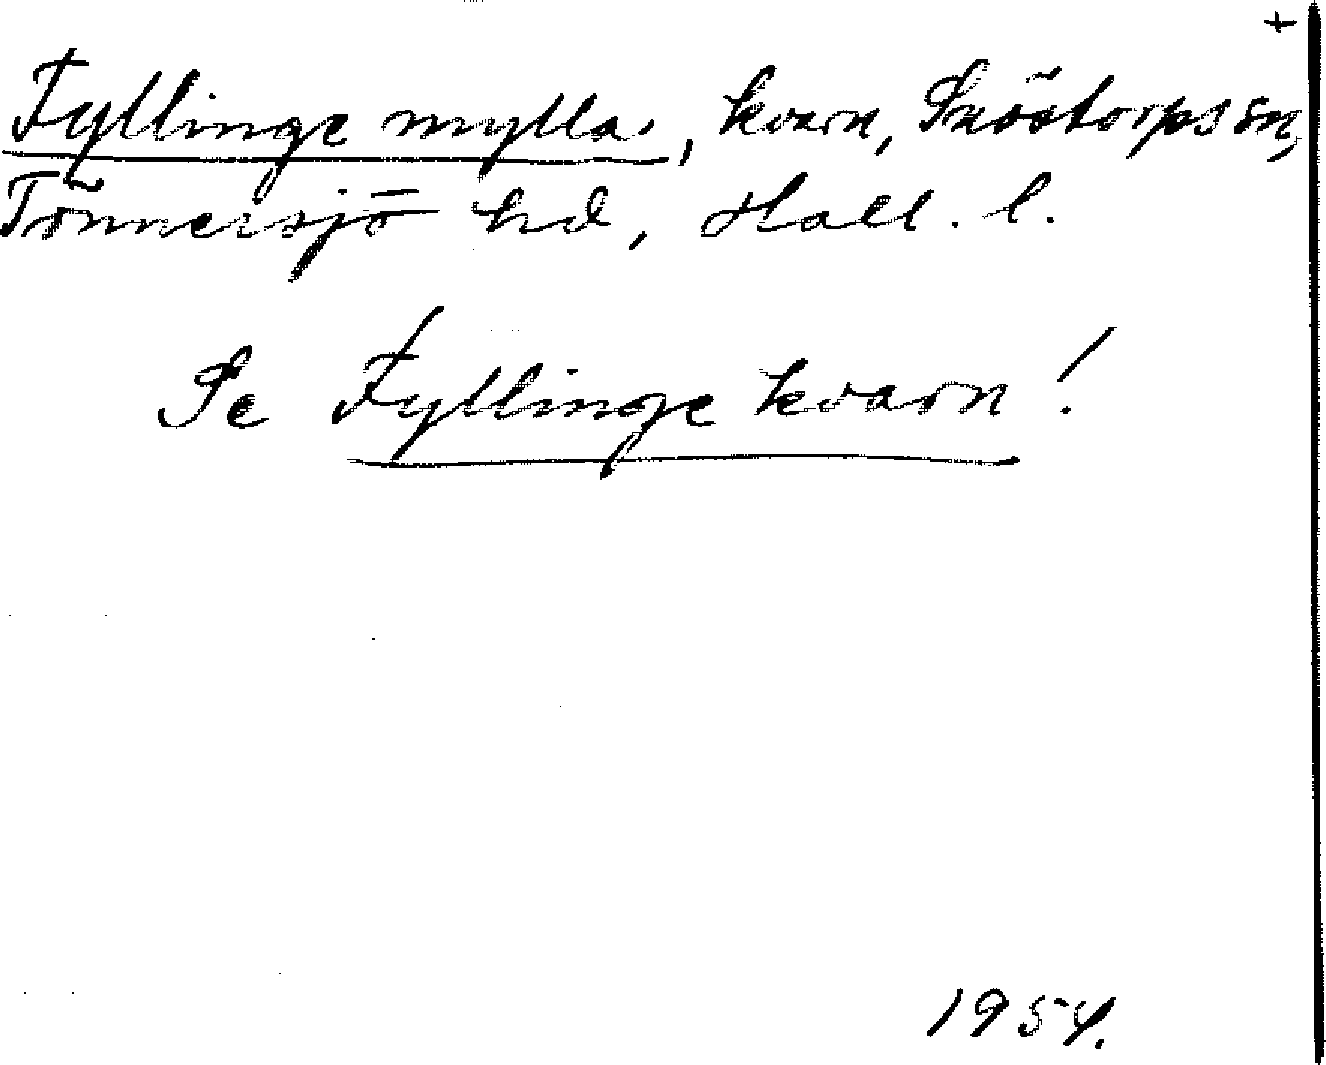 +
Fyllinge mylla, kvarn, Snöstorps sn,
Tönnersjö hd, Hall. l.
Se Fyllinge kvarn!
1954.